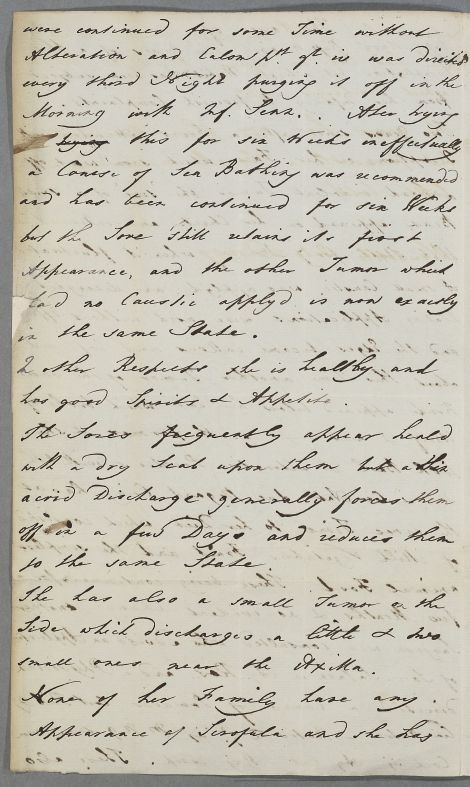 were continued for some Time without
Alteration and Calom ppt gr iv was directed
every third Night purging it off in the
Morning with Inf. Senn. . After trying
trying this for six Weeks ineffectually
a Course of Sea Bathing was recommended
and has been continued for six Weeks
but the Sore still retains its first
Appearance, and the other Tumor which
had no Caustic applyd is now exactly
in the same State.
In other Respects she is healthy and
has good Spirits & Appetite.
The Sores frequently appear heald
with a dry Scab upon them but a thin
acrid Discharge generally forces them
off in a few Days and reduces them
to the same State.
She has also a small Tumor on the
Side which discharges a little & two
small ones near the Axilla.
None of her Family have any
Appearance of Scrofula and she has